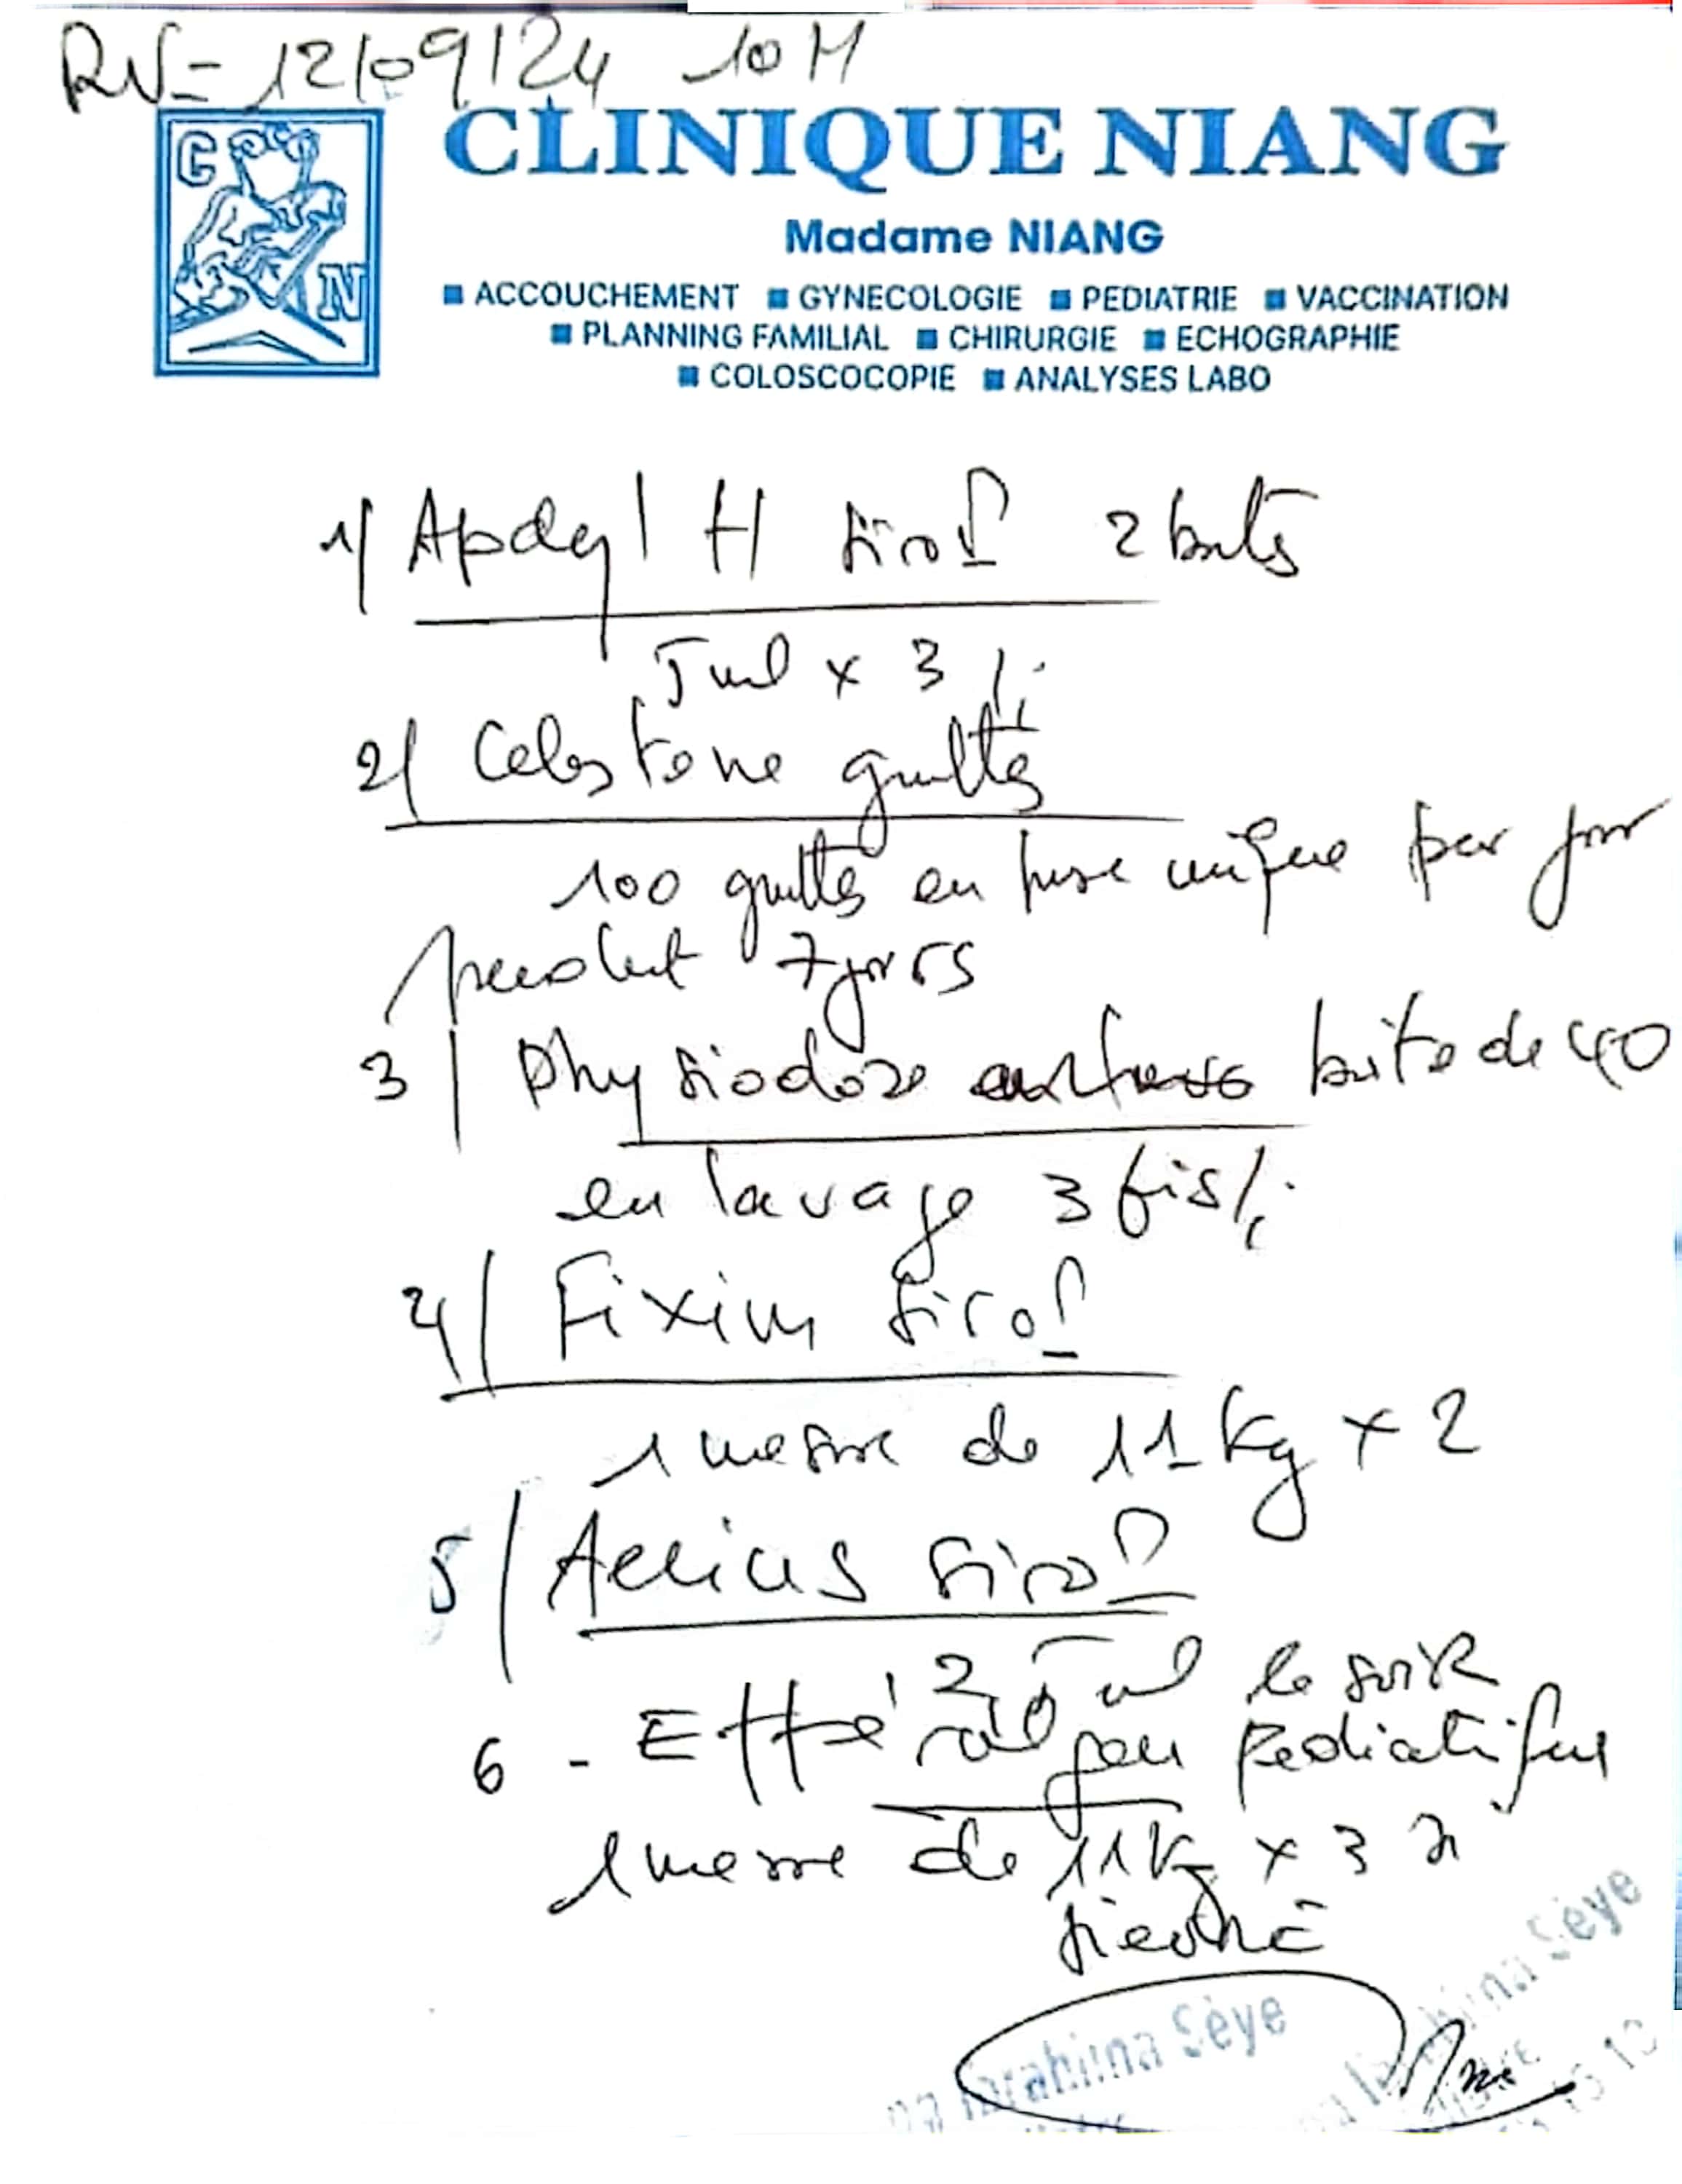 RV= 12/09/24 10H
CLINIQUE NIANG
C N
Madame NIANG
■ ACCOUCHEMENT ■ GYNECOLOGIE ■ PEDIATRIE ■ VACCINATION
■ PLANNING FAMILIAL ■ CHIRURGIE ■ ECHOGRAPHIE
■ COLOSCOCOPIE ■ ANALYSES LABO
1/ Apdyl H sirop 2 boites
5ml x 3 /j
2/ Celestene gouttes
100 gouttes en prise unique par jour
pendant 7 jours
3/ Physiodose boite de 40
en lavage 3 fois/j
4/ Fixim sirop
1 mesure de 11 kg x 2
5/ Aerius sirop
2,5 ml le soir
6 - Efféralgan Pediatrique
1 mesure de 11 kg x 3 si
fièvre
Ibrahima Sèye
Sèye